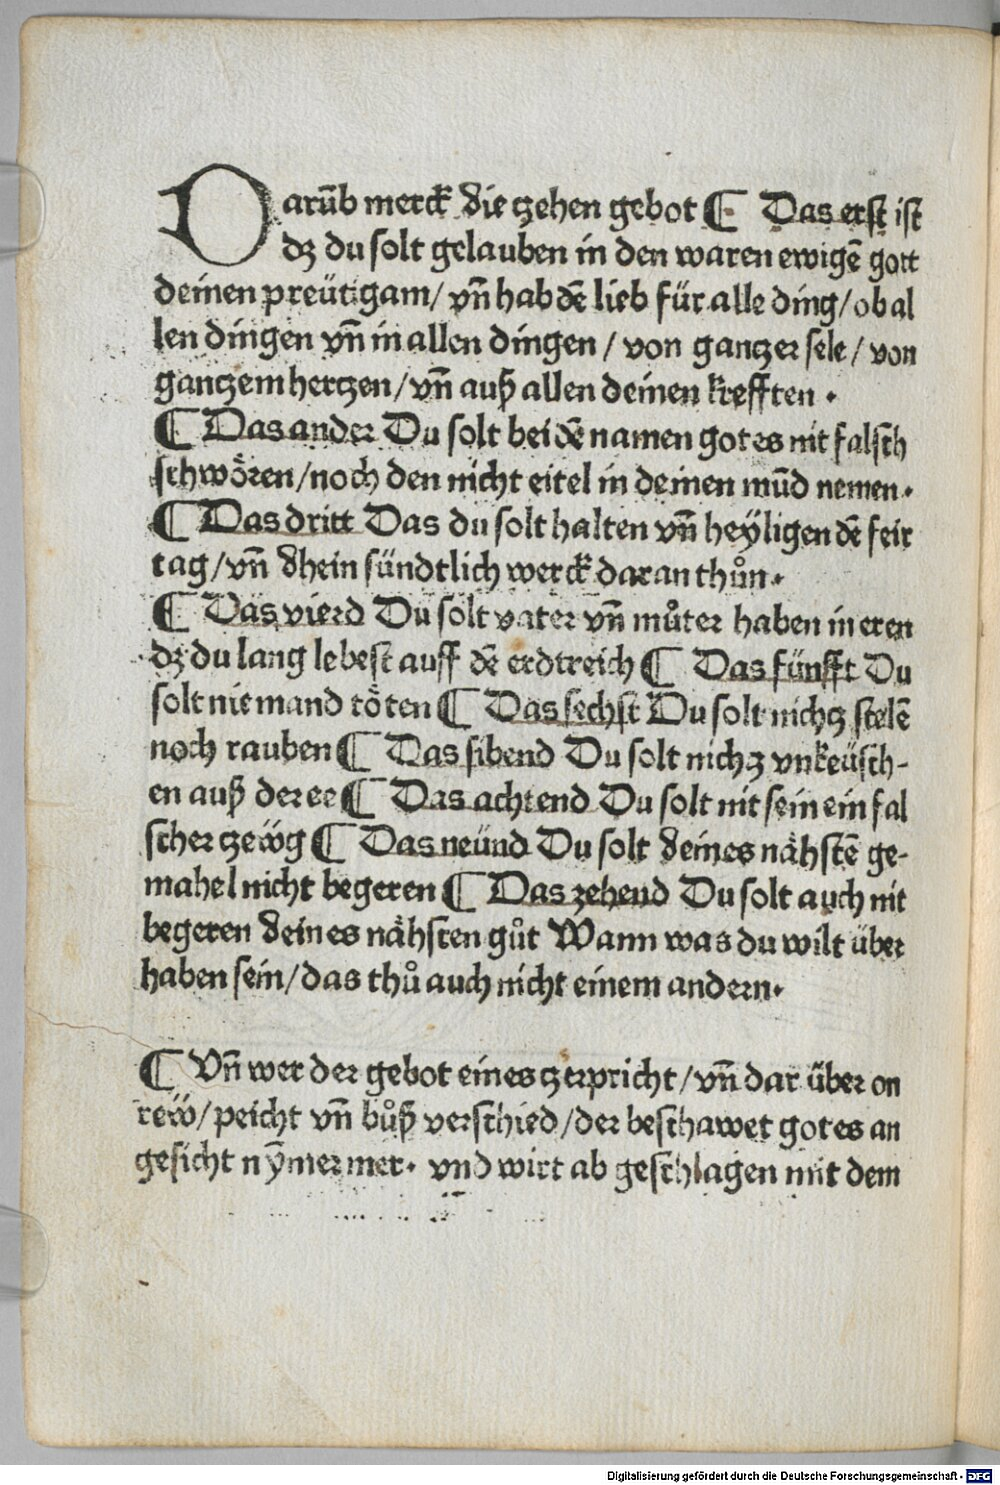 Darūb merck die zehen gebot ¶ Das erst ist
dz du solt gelauben in den waren ewigē gott
deinen preütigam/ vn̄ hab dē lieb für alle ding/ ob al
len dingen vn̄ in allen dingen / von gantzer sele / von
gantzem hertzen / vn̄ auß allen deinen krefften .
¶ Das ander Du solt bei dē namen gotes nit falsch
schwören / noch den nicht eitel in deinen mūd nemen.
¶ Das dritt Das du solt halten vn̄ heÿligen dē feir
tag / vn̄ dhein sündtlich werck dar an thůn.
¶ Das vierd Du solt vater vn̄ můter haben in eren
dz du lang lebest auff dē erdtreich ¶ Das fünfft Du
solt niemand töten ¶ Das sechst Du solt nichz stelē
noch rauben ¶ Das sibend Du solt nichz vnkeüsch-
en auß der ee ¶ Das achtend Du solt nit sein ein fal
scher zeüg ¶ Das neünd Du solt deines nähstē ge-
mahel nicht begeren ¶ Das zehend Du solt auch nit
begeren deines nähsten gůt Wann was du wilt über
haben sein/ das thů auch nicht einem andern.
¶ Vn̄ wer der gebot eines zerpricht / vn̄ dar über on
rew̎ / peicht vn̄ bůß verschied / der beschawet gotes an
gesicht nȳmer mer. vnd wirt ab geschlagen mit dem
Digitalisierung gefördert durch die Deutsche Forschungsgemeinschaft - DFG